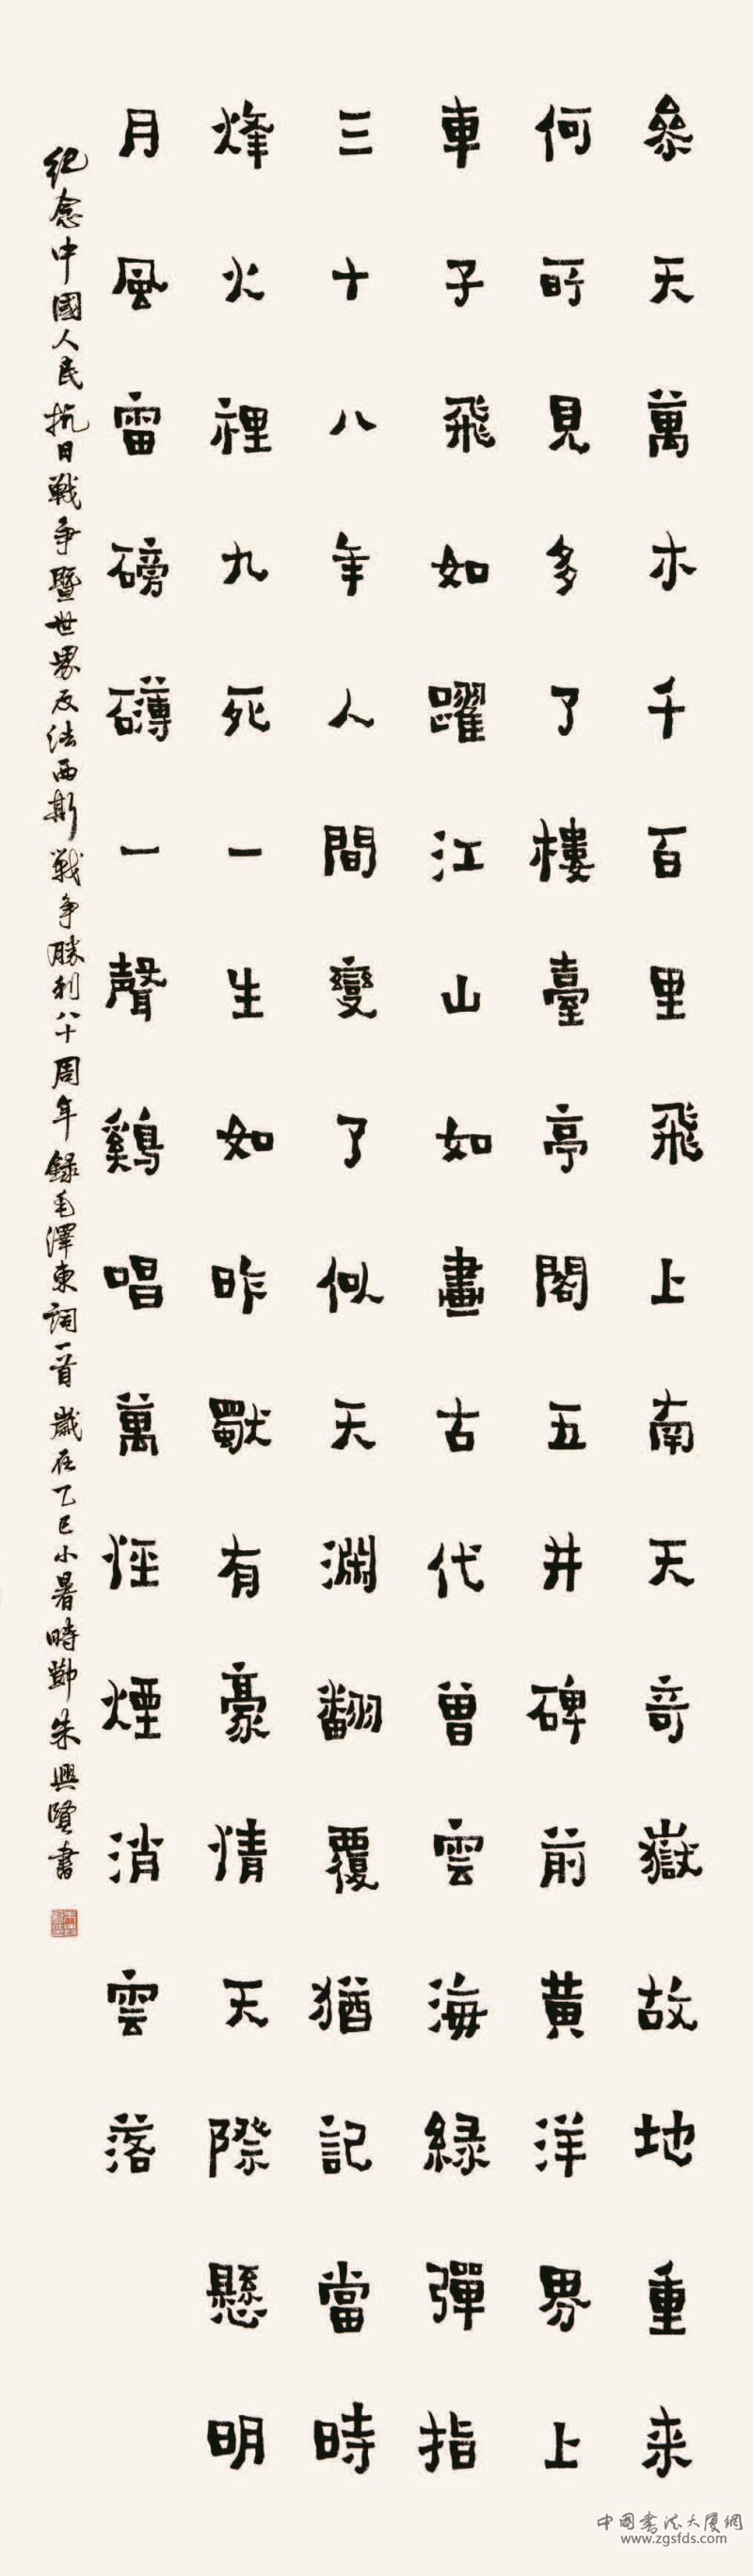 參天萬木千百里飛上南天奇嶽故地重来
何所見多了樓臺亭閣五井碑前黃洋界上
車子飛如躍江山如畫古代曾雲海綠彈指
三十八年人間變了似天淵翻覆猶記當時
烽火裡九死一生如昨獨有豪情天際懸明
月風雷磅礴一聲鷄唱萬怪煙消雲落
紀念中國人民抗日戰争暨世界反法西斯戰争勝利八十周年錄毛澤東詞一首 歲在乙巳小暑時朱興賢書
中國書法大廈網
www.zgsfds.com